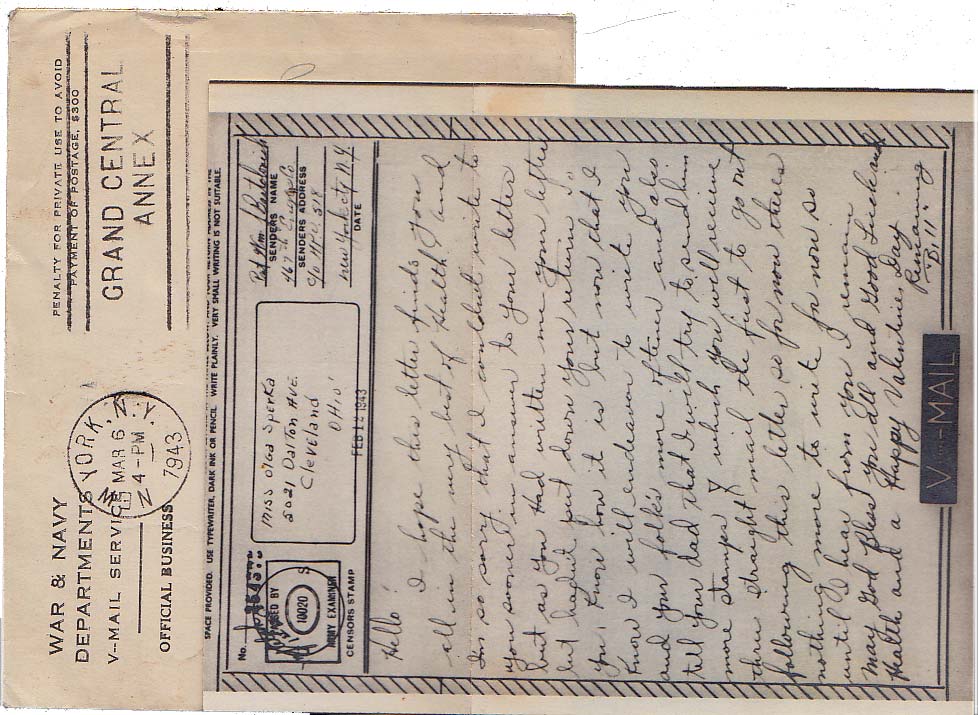 PENALTY FOR PRIVATE USE TO AVOID
PAYMENT OF POSTAGE, $300
GRAND CENTRAL
ANNEX
WAR & NAVY
DEPARTMENTS
V-MAIL SERVICE
OFFICIAL BUSINESS
NEW YORK, N.Y.
MAR 6
4-PM
1943
SPACE PROVIDED. USE TYPEWRITER, DARK INK OR PENCIL. WRITE PLAINLY. VERY SMALL WRITING IS NOT SUITABLE.
No.
PASSED BY
10020
ARMY EXAMINER
CENSORS STAMP
Miss Olga Sperka
5021 Dalton Ave.
Cleveland
Ohio
FEB 12 1943
SENDERS NAME
SENDERS ADDRESS
New York City N.Y.
DATE
Hello!
I hope this letter finds you
all in the very best of Health, and
I'm so sorry that I couldn't write to
you sooner in answer to your letter
but as you had written me your letter
but hadn't put down your return
you know how it is but now that I
know I will endeavor to write you
and your folk's more often and also
tell your dad that I will try to send him
more stamps which you will receive
three straight mail the first to go out
following this letter so for now there's
nothing more to write for now so
until I hear from you I remain
May God Bless you all and Good Luck and
Health and a Happy Valentines Day
Remaining
"Bill"
V-MAIL